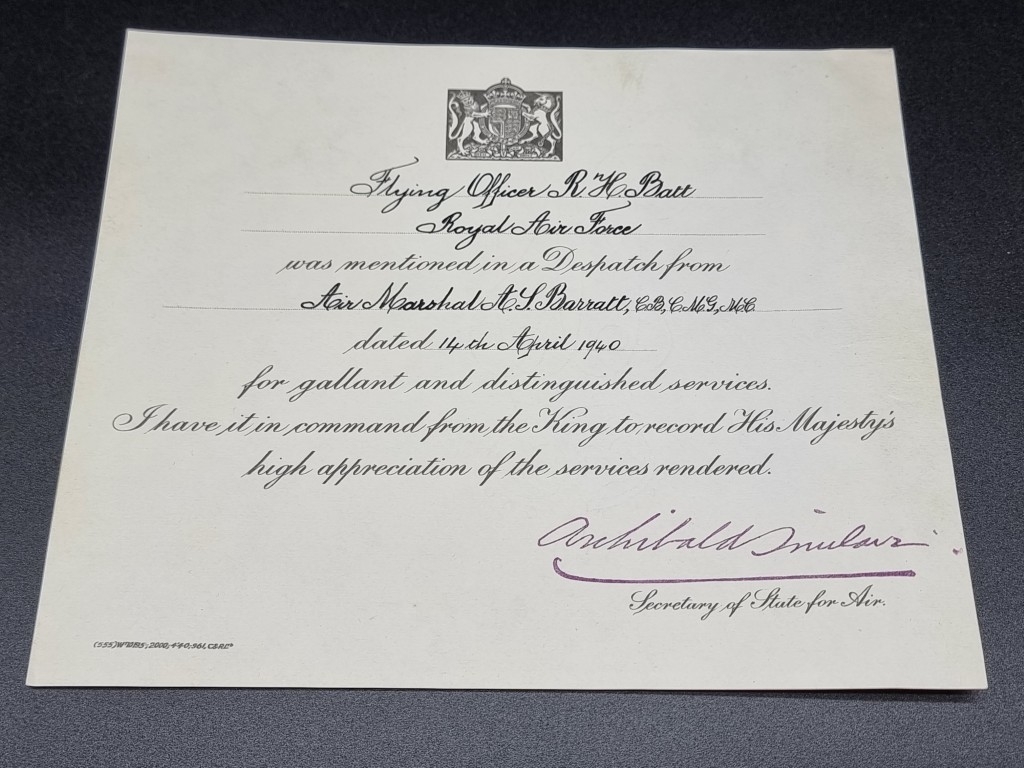 Flying Officer R. H. Batt
Royal Air Force
was mentioned in a Despatch from
Air Marshal A. S. Barratt, CB, C.M.G, M.C.
dated 14th April 1940
for gallant and distinguished services.
I have it in command from the King to record His Majesty's
high appreciation of the services rendered.
Archibald Sinclair
Secretary of State for Air.